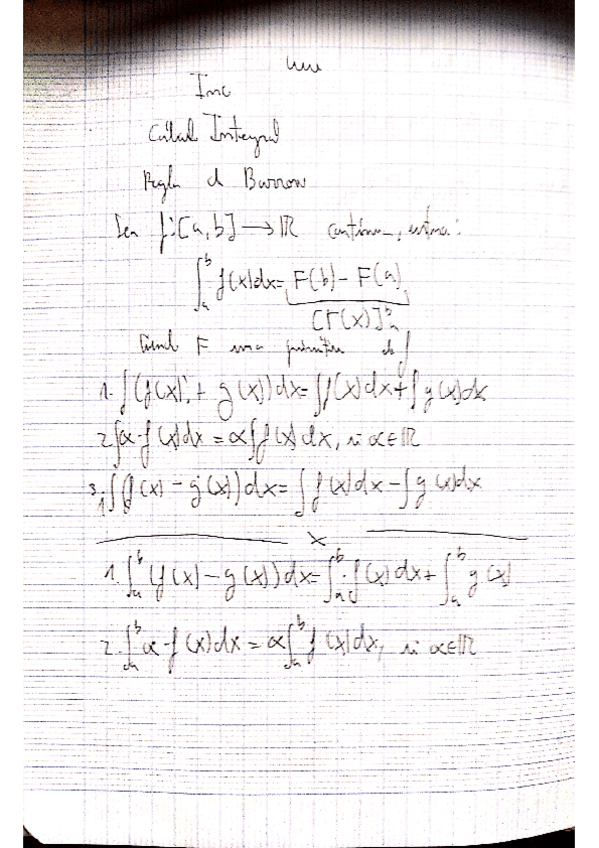 Calcul Integral
Regla d Barrow
Sea f:[a,b] → ℝ continua, entonces:
∫ₐᵇ f(x)dx = F(b) - F(a)
[F(x)]ᵇₐ
Siend F una primitiva de f
1. ∫(f(x) + g(x))dx = ∫f(x)dx + ∫g(x)dx
2. ∫α·f(x)dx = α∫f(x)dx, si α∈ℝ
3. ∫(f(x) - g(x))dx = ∫f(x)dx - ∫g(x)dx
x
1. ∫ₐᵇ (f(x) - g(x))dx = ∫ₐᵇ f(x)dx + ∫ₐᵇ g(x)
2. ∫ₐᵇ α·f(x)dx = α∫ₐᵇ f(x)dx, si α∈ℝ